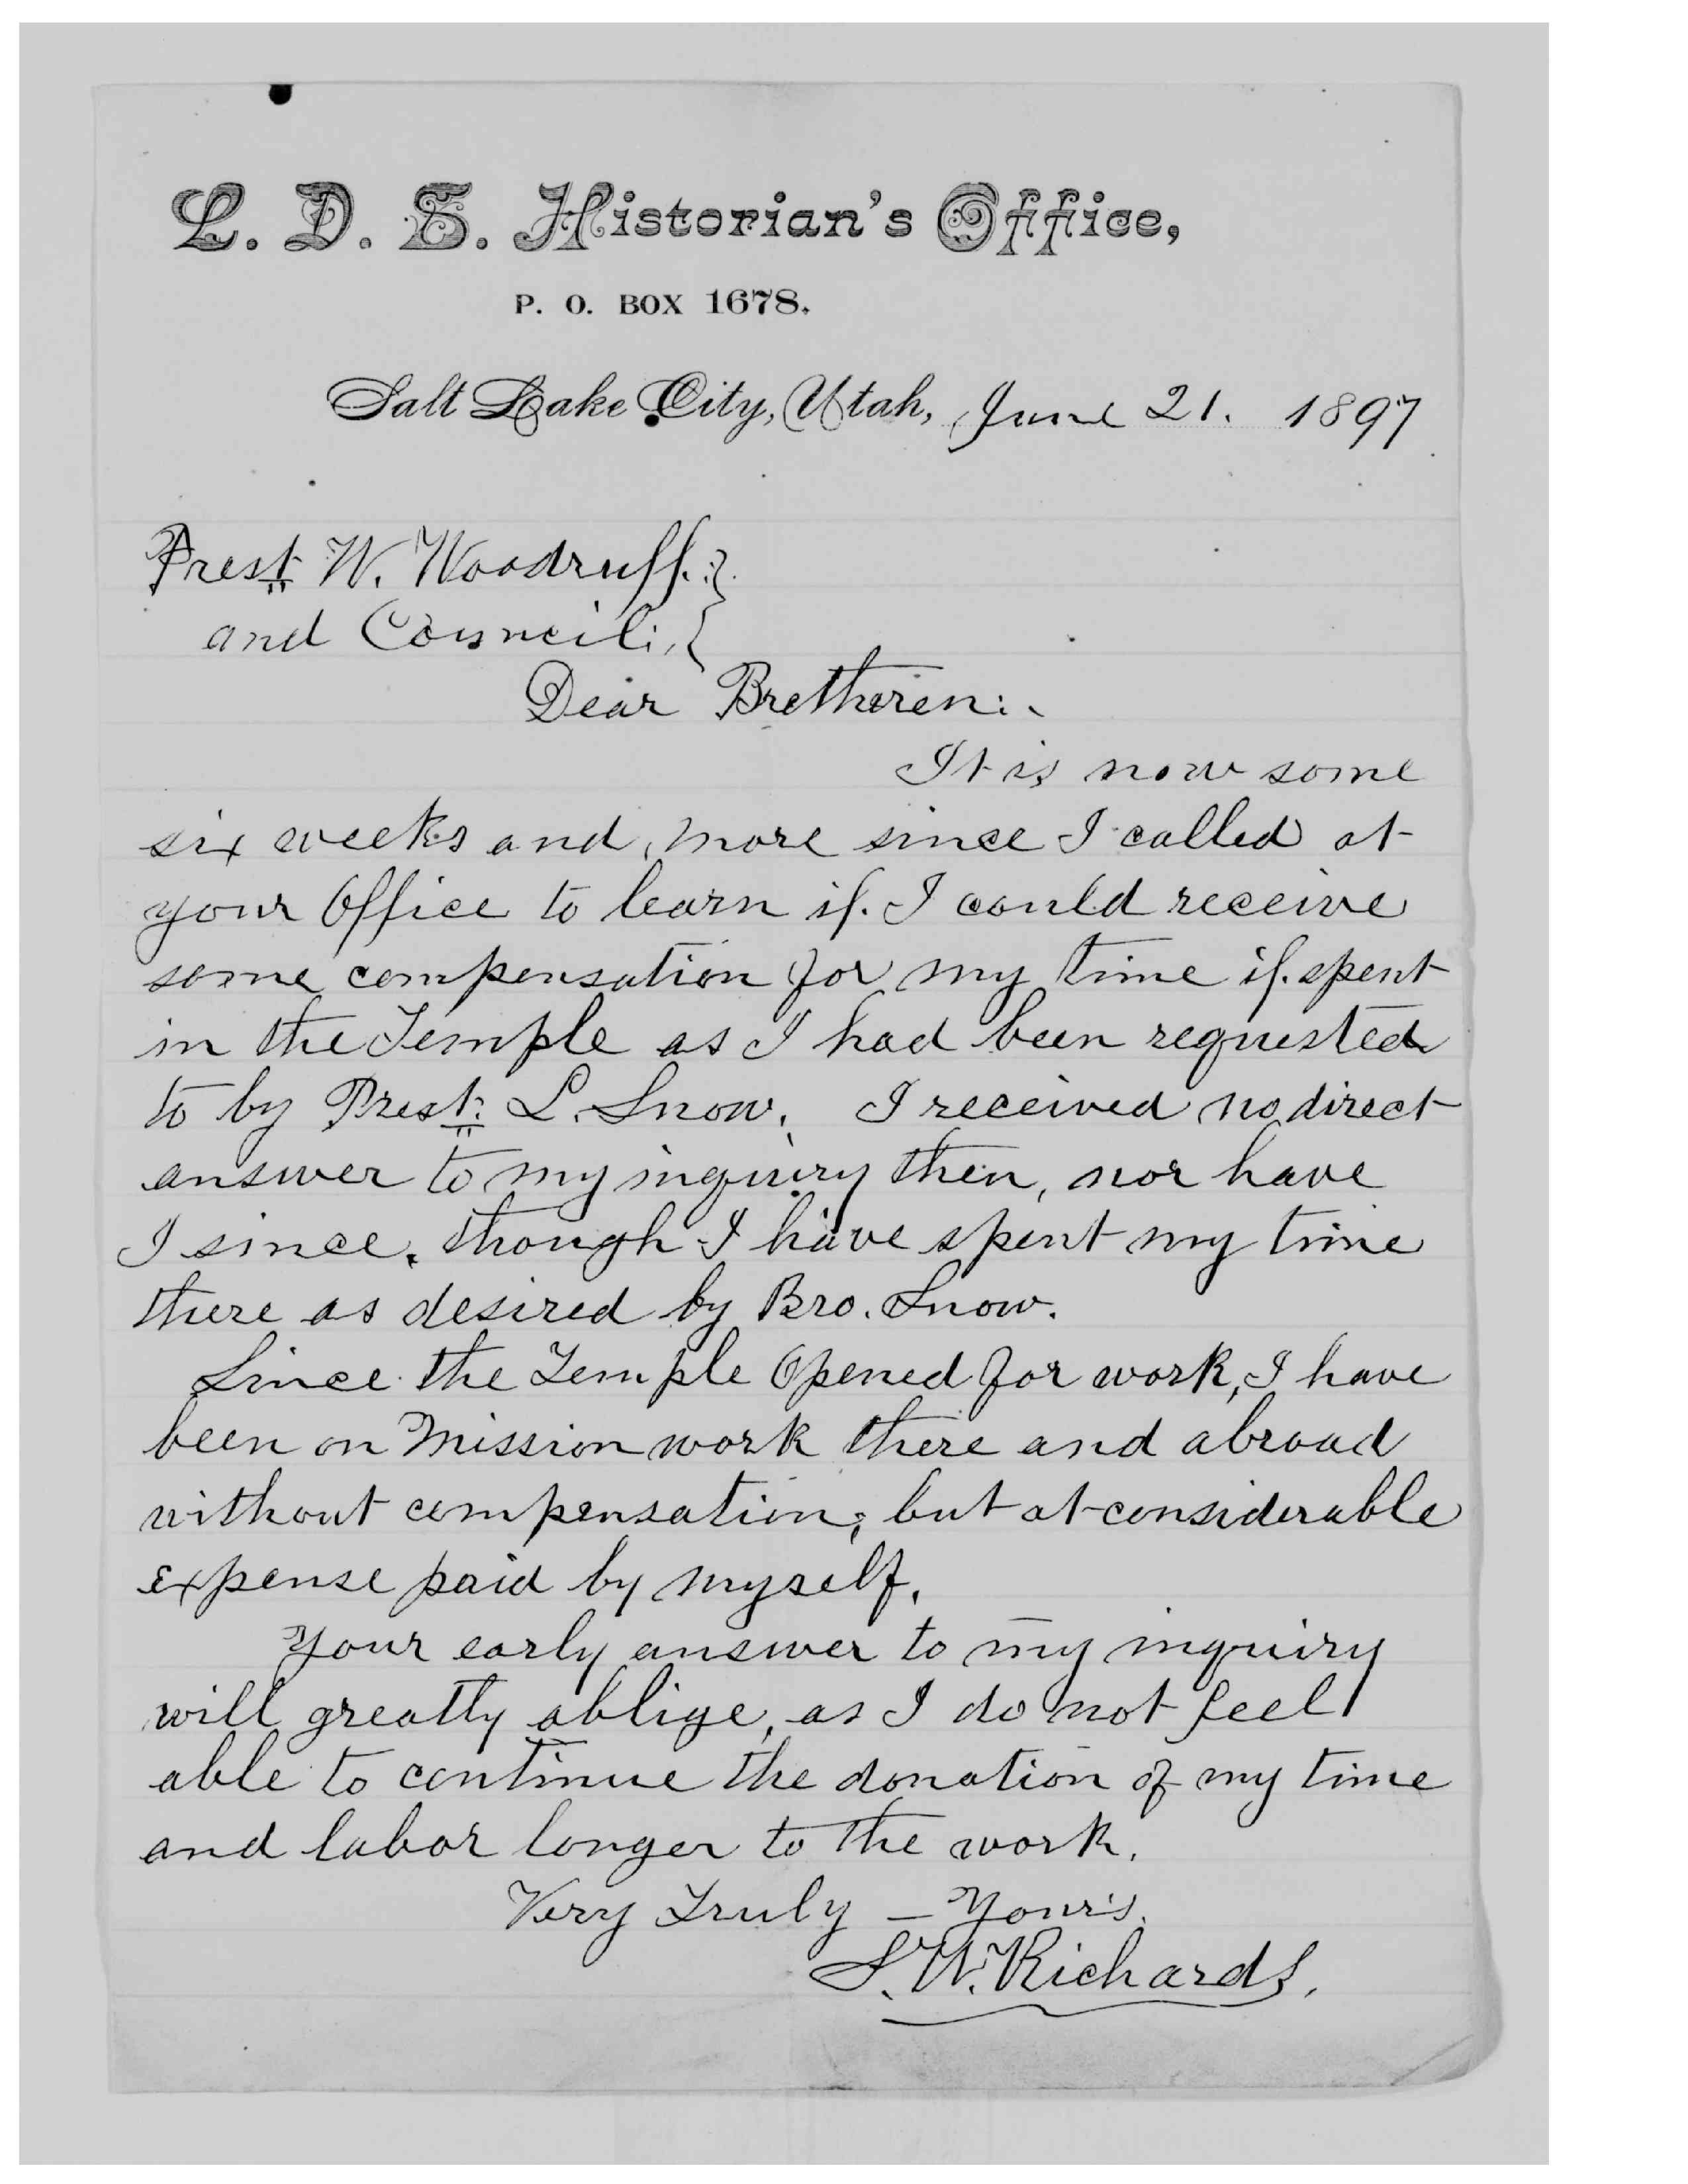 L. D. S. Historian's Office,
P. O. BOX 1678.
Salt Lake City, Utah, June 21. 1897
Prest W. Woodruff.:}
and Council:,}
Dear Bretheren:.
It is now some
six weeks and, more since I called at
your Office to learn if I could receive
some compensation for my time if spent
in the Temple as I had been requested
to by Prest: L. Snow. I received no direct
answer to my inquiry then, nor have
I since, though I have spent my time
there as desired by Bro. Snow.
Since the Temple Opened for work, I have
been on Mission work there and abroad
without compensation; but at considerable
expense paid by myself.
Your early answer to my inquiry
will greatly oblige, as I do not feel
able to continue the donation of my time
and labor longer to the work.
Very Truly – Your's.
S. W. Richards.